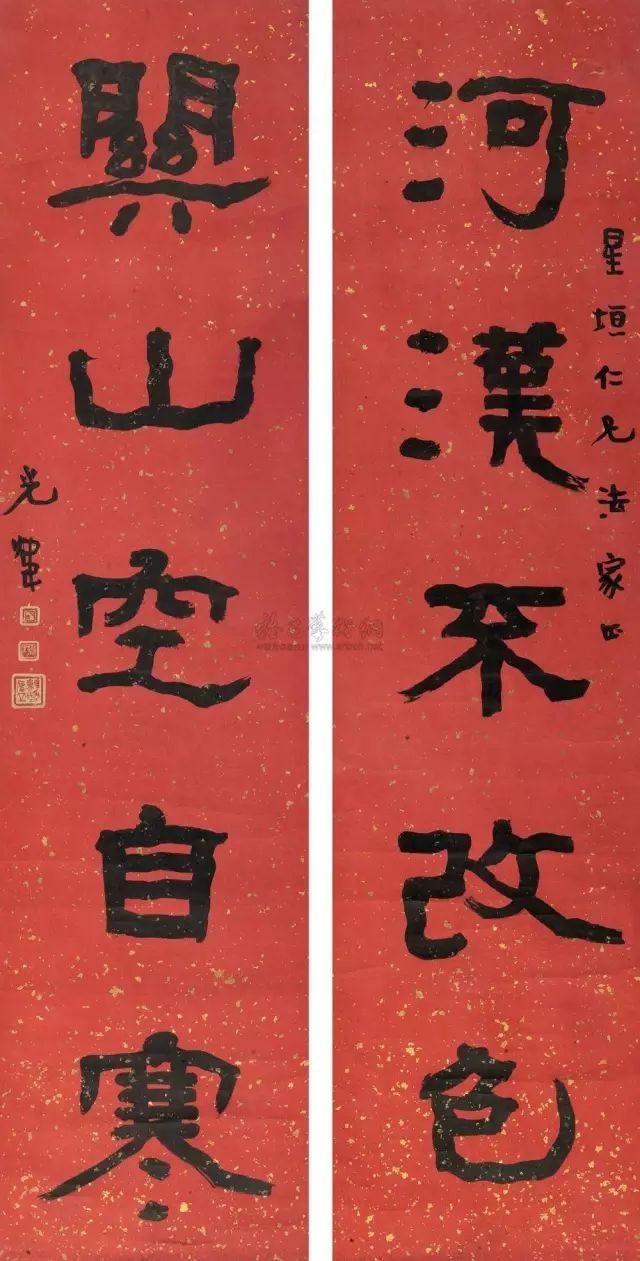 河漢不改色
星垣仁兄法家正
關山空自寒
光煒